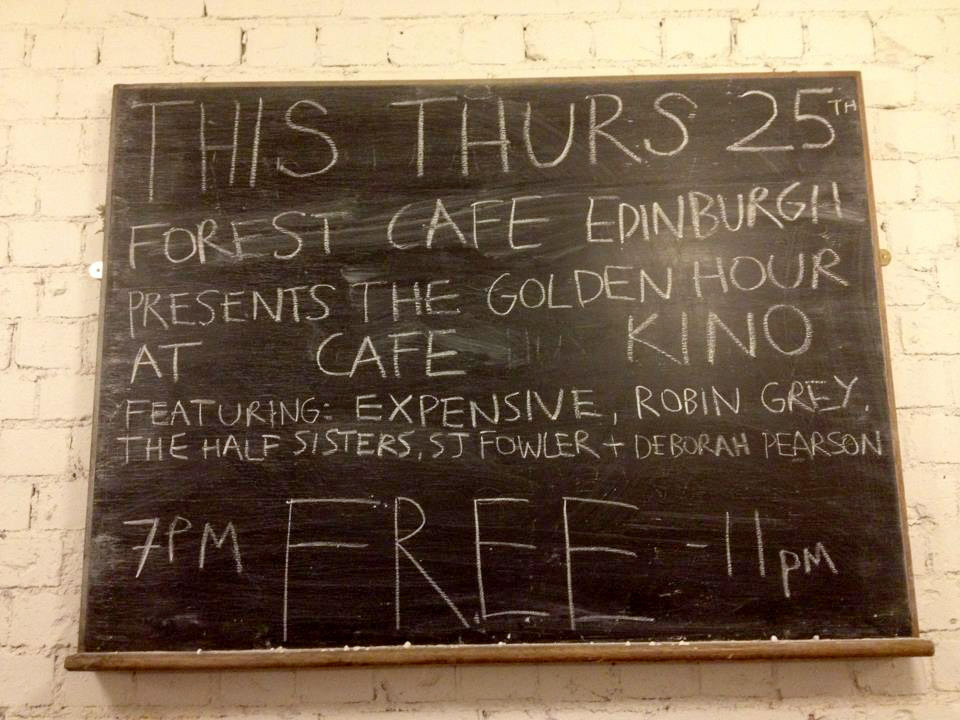 THIS THURS 25TH
FOREST CAFE EDINBURGH
PRESENTS THE GOLDEN HOUR
AT CAFE KINO
FEATURING: EXPENSIVE, ROBIN GREY,
THE HALF SISTERS, SJ FOWLER + DEBORAH PEARSON
7PM FREE -11pm